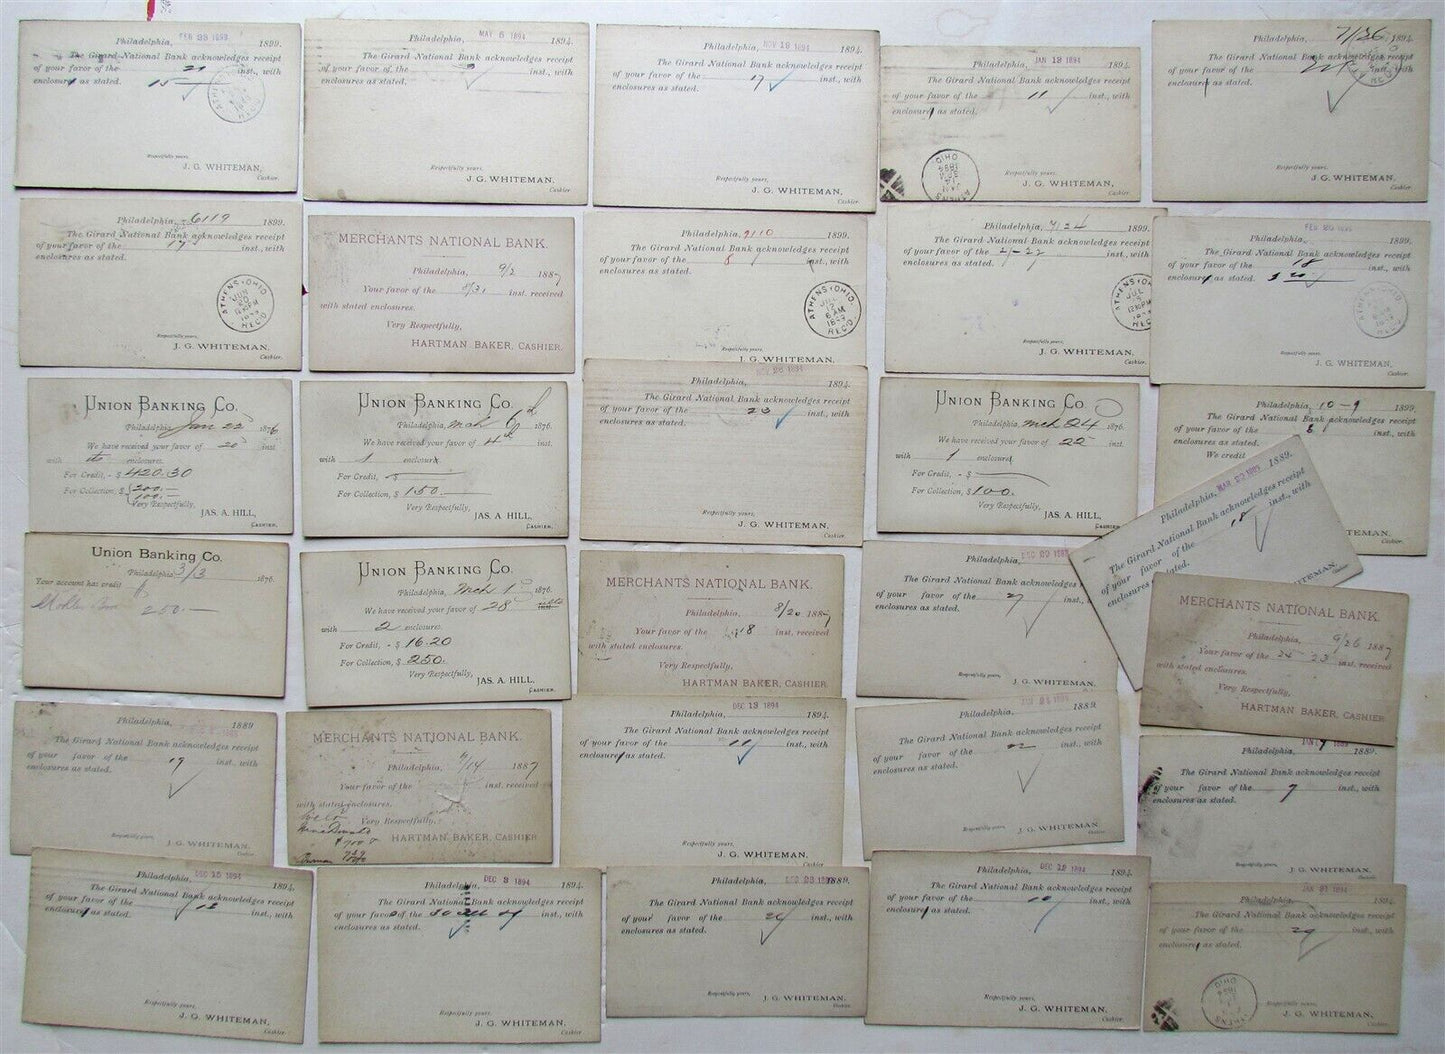 Philadelphia, FEB 23 1899 1899.
The Girard National Bank acknowledges receipt
of your favor of the 21 inst., with
enclosures as stated. 15
Respectfully yours,
J. G. WHITEMAN,
Cashier.
Philadelphia, MAY 5 1894 1894.
The Girard National Bank acknowledges receipt
of your favor of the 3 inst., with
enclosures as stated.
Respectfully yours,
J. G. WHITEMAN,
Cashier.
Philadelphia, NOV 19 1894 1894.
The Girard National Bank acknowledges receipt
of your favor of the 17 inst., with
enclosures as stated.
Respectfully yours,
J. G. WHITEMAN,
Cashier.
Philadelphia, JAN 13 1894 1894.
The Girard National Bank acknowledges receipt
of your favor of the 11 inst., with
enclosure as stated.
Respectfully yours,
J. G. WHITEMAN,
Cashier.
Philadelphia, 7/26 1894.
The Girard National Bank acknowledges receipt
of your favor of the inst., with
enclosure as stated.
Respectfully yours,
J. G. WHITEMAN,
Cashier.
Philadelphia, 6/19 1899.
The Girard National Bank acknowledges receipt
of your favor of the 17 inst., with
enclosures as stated.
ATHENS, OHIO.
JUN
20
REC'D.
Respectfully yours,
J. G. WHITEMAN,
Cashier.
MERCHANTS NATIONAL BANK.
Philadelphia, 9/2 1887
Your favor of the 8/31 inst. received
with stated enclosures.
Very Respectfully,
HARTMAN BAKER, CASHIER.
Philadelphia, 7/10 1899.
The Girard National Bank acknowledges receipt
of your favor of the 8 inst., with
enclosures as stated.
ATHENS, OHIO.
JUL
8 AM
1899
REC'D.
Respectfully yours,
J. G. WHITEMAN,
Philadelphia, 7/24 1899.
The Girard National Bank acknowledges receipt
of your favor of the 21-22 inst., with
enclosures as stated.
Respectfully yours,
J. G. WHITEMAN,
Cashier.
Philadelphia, FEB 20 1899.
The Girard National Bank acknowledges receipt
of your favor of the 18 inst., with
enclosures as stated.
Respectfully yours,
J. G. WHITEMAN,
Cashier.
UNION BANKING CO.
Philadelphia, Jan 22 1876
We have received your favor of 20 inst
with its enclosures.
For Credit, - $ 420.30
For Collection, $ 200.—
100.—
Very Respectfully,
JAS. A. HILL,
CASHIER.
UNION BANKING CO.
Philadelphia, Mch 6 1876.
We have received your favor of 4th inst.
with 1 enclosure.
For Credit, - $
For Collection, $ 150.
Very Respectfully,
JAS. A. HILL,
CASHIER.
Philadelphia, NOV 26 1894 1894.
The Girard National Bank acknowledges receipt
of your favor of the 23 inst., with
enclosures as stated.
Respectfully yours,
J. G. WHITEMAN,
Cashier.
UNION BANKING CO.
Philadelphia, Mch 24 1876.
We have received your favor of 22 inst
with 1 enclosure
For Credit, - $
For Collection, $ 100.
Very Respectfully,
JAS. A. HILL,
CASHIER.
Philadelphia, 10-9 1899.
The Girard National Bank acknowledges receipt
of your favor of the inst., with
We credit
WHITEMAN,
Cashier.
Philadelphia, MAR 20 1889.
The Girard National Bank acknowledges receipt
of your favor of the 18 inst., with
enclosures as stated.
WHITEMAN,
Union Banking Co.
Philadelphia 3/3 1876.
Your account has credit
250.—
UNION BANKING CO.
Philadelphia, Mch 1 1876.
We have received your favor of 28
with 2 enclosures.
For Credit, - $ 16.20
For Collection, $ 250.
Very Respectfully,
JAS. A. HILL,
CASHIER.
MERCHANTS NATIONAL BANK.
Philadelphia, 8/20 1887
Your favor of the 18 inst. received
with stated enclosures.
Very Respectfully,
HARTMAN BAKER, CASHIER.
Philadelphia,
The Girard National Bank acknowledges
of your favor of the 27 inst.,
enclosures as stated.
Respectfully yours,
J. G. WHITEMAN,
Cashier.
MERCHANTS NATIONAL BANK.
Philadelphia, 9/26 1887
Your favor of the 23 inst. received
with stated enclosures.
Very Respectfully,
HARTMAN BAKER, CASHIER
Philadelphia, 1889
The Girard National Bank acknowledges receipt
of your favor of the 19 inst., with
enclosures as stated.
Respectfully yours,
J. G. WHITEMAN,
Cashier.
MERCHANTS NATIONAL BANK.
Philadelphia, 6/14 1887
Your favor of the inst. received
with stated enclosures.
Very Respectfully,
HARTMAN BAKER, CASHIER
Philadelphia, DEC 13 1894 1894.
The Girard National Bank acknowledges receipt
of your favor of the 11 inst., with
enclosure as stated.
Respectfully yours,
J. G. WHITEMAN,
Cashier.
Philadelphia, JAN 24 1889.
The Girard National Bank acknowledges receipt
of your favor of the 22 inst., with
enclosures as stated.
Respectfully yours,
J. G. WHITEMAN,
Cashier.
JAN 9 1889.
The Girard National Bank acknowledges receipt
of your favor of the 7 inst., with
enclosures as stated.
Respectfully yours,
J. G. WHITEMAN,
Cashier.
Philadelphia, DEC 15 1894 1894.
The Girard National Bank acknowledges receipt
of your favor of the 13 inst., with
enclosure as stated.
Respectfully yours,
J. G. WHITEMAN,
Cashier.
Philadelphia, DEC 3 1894 1894.
The Girard National Bank acknowledges receipt
of your favor of the inst., with
enclosures as stated.
Respectfully yours,
J. G. WHITEMAN,
Cashier.
Philadelphia, DEC 23 1889.
The Girard National Bank acknowledges receipt
of your favor of the inst., with
enclosures as stated.
Respectfully yours,
J. G. WHITEMAN,
Cashier.
Philadelphia, DEC 12 1894.
The Girard National Bank acknowledges receipt
of your favor of the 10 inst., with
enclosure as stated.
Respectfully yours,
J. G. WHITEMAN,
Cashier.
Philadelphia, JAN 31 1894 1894.
The Girard National Bank acknowledges receipt
of your favor of the 29 inst., with
enclosure as stated.
Respectfully yours,
J. G. WHITEMAN,
Cashier.